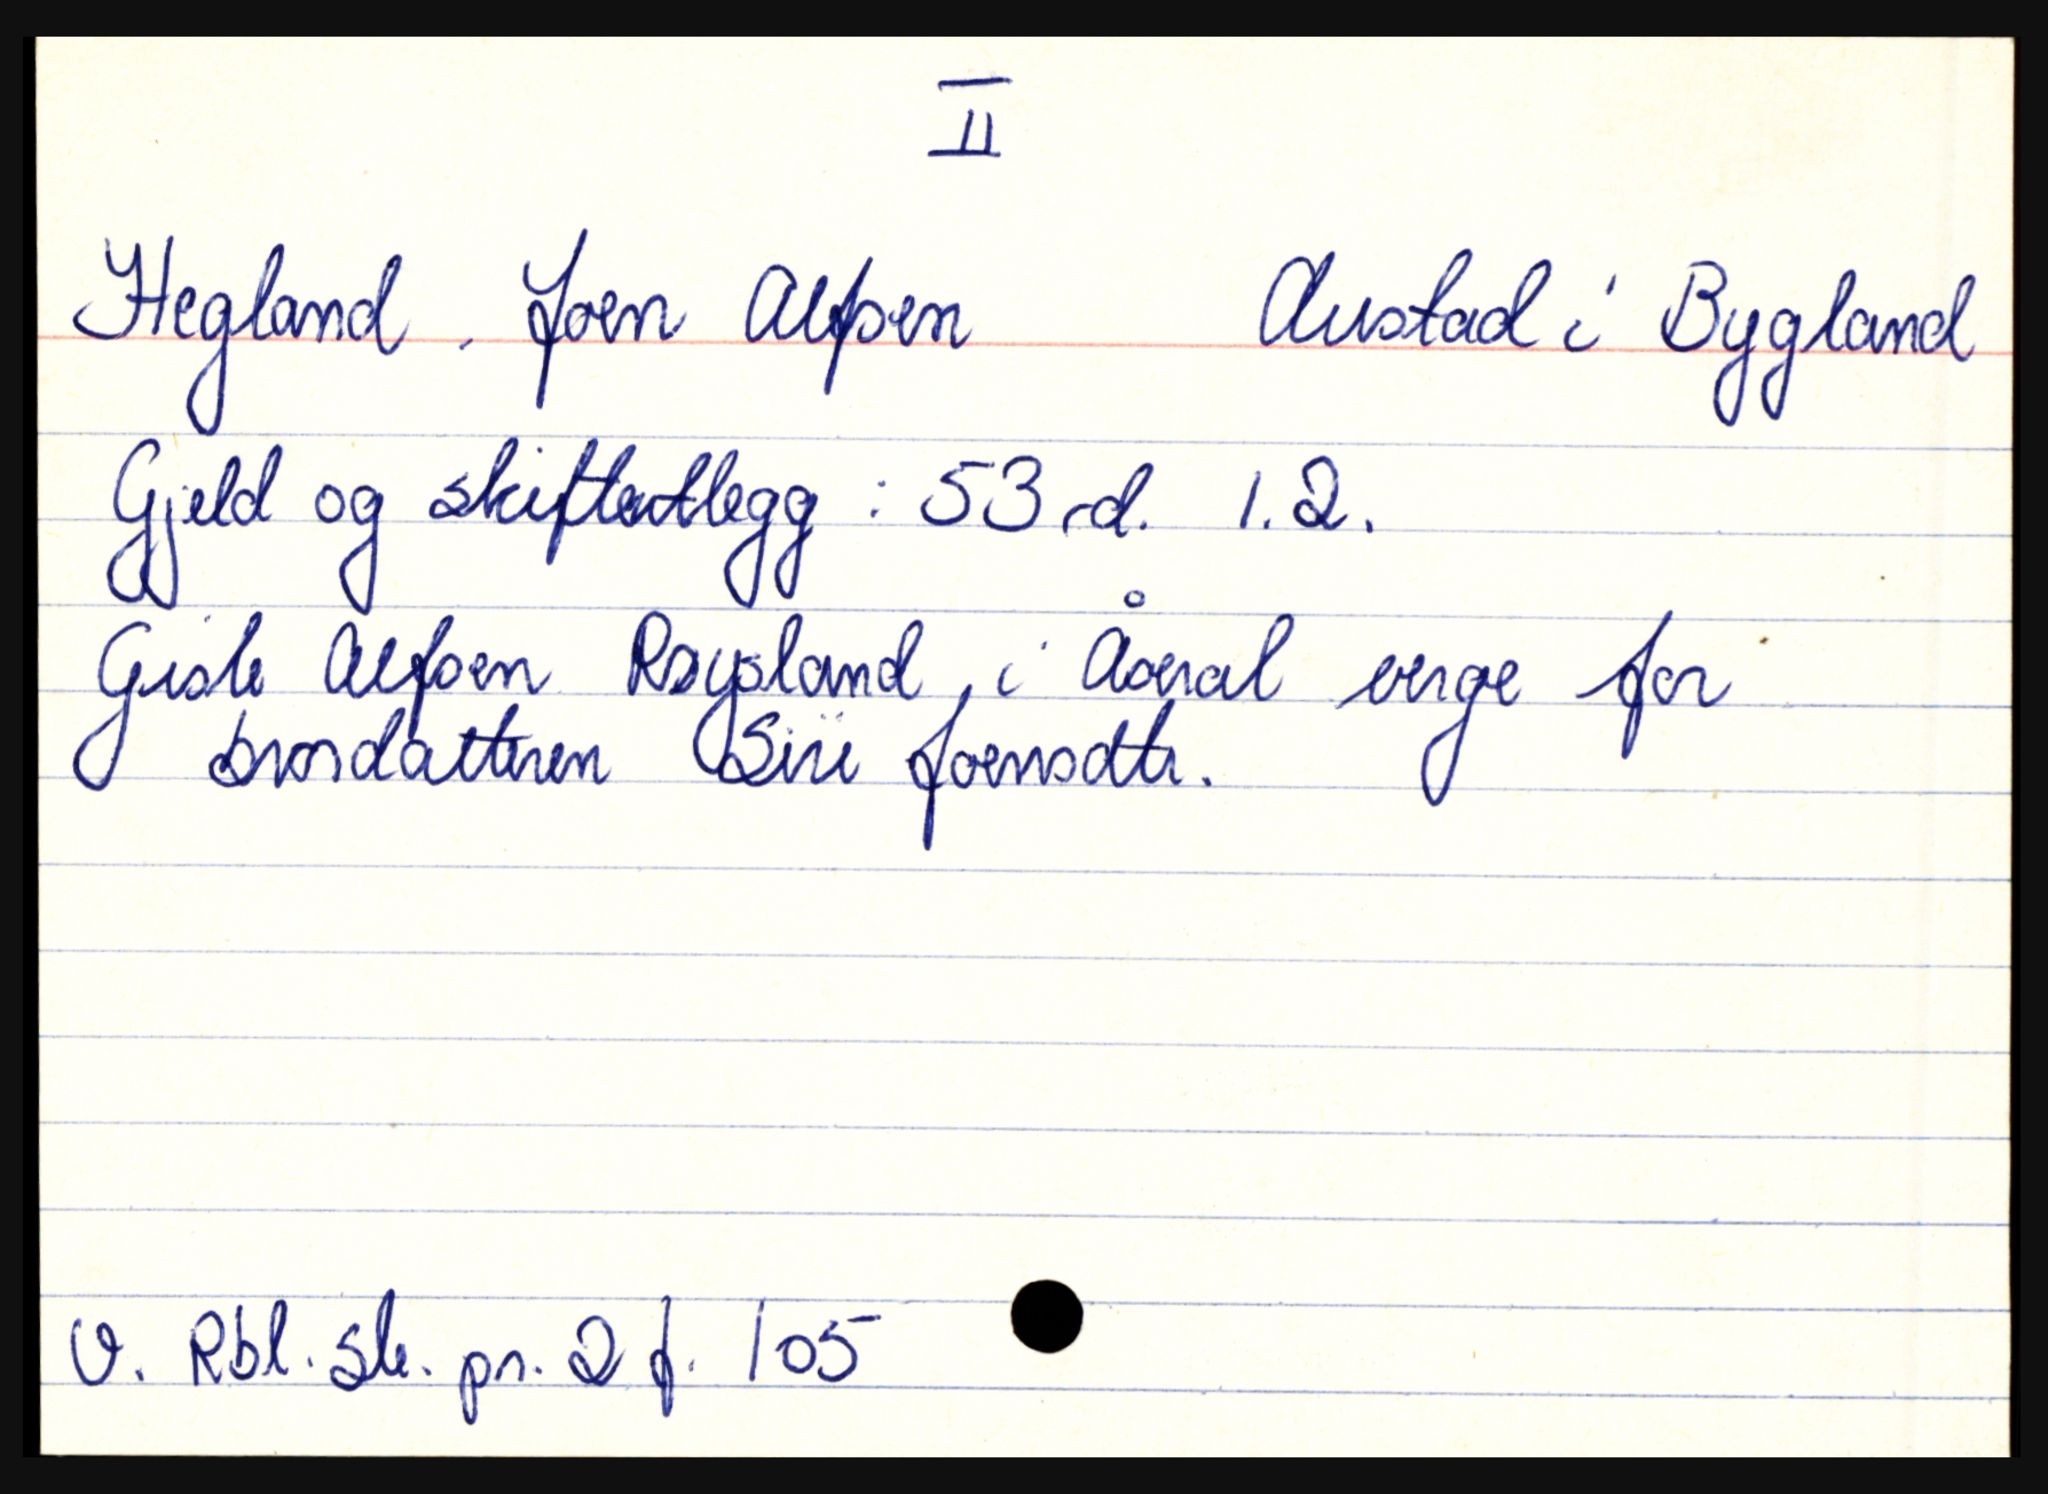 II
Hegland, Joen Alfsen Austad i Bygland
Gjeld og skifteutlegg : 53 rd. 1. 2.
Gisle Alfsen Røysland, i Åseral verge for
brordatteren Siri Joensdtr.
V. Rbl. sk. pr. 2 f. 105